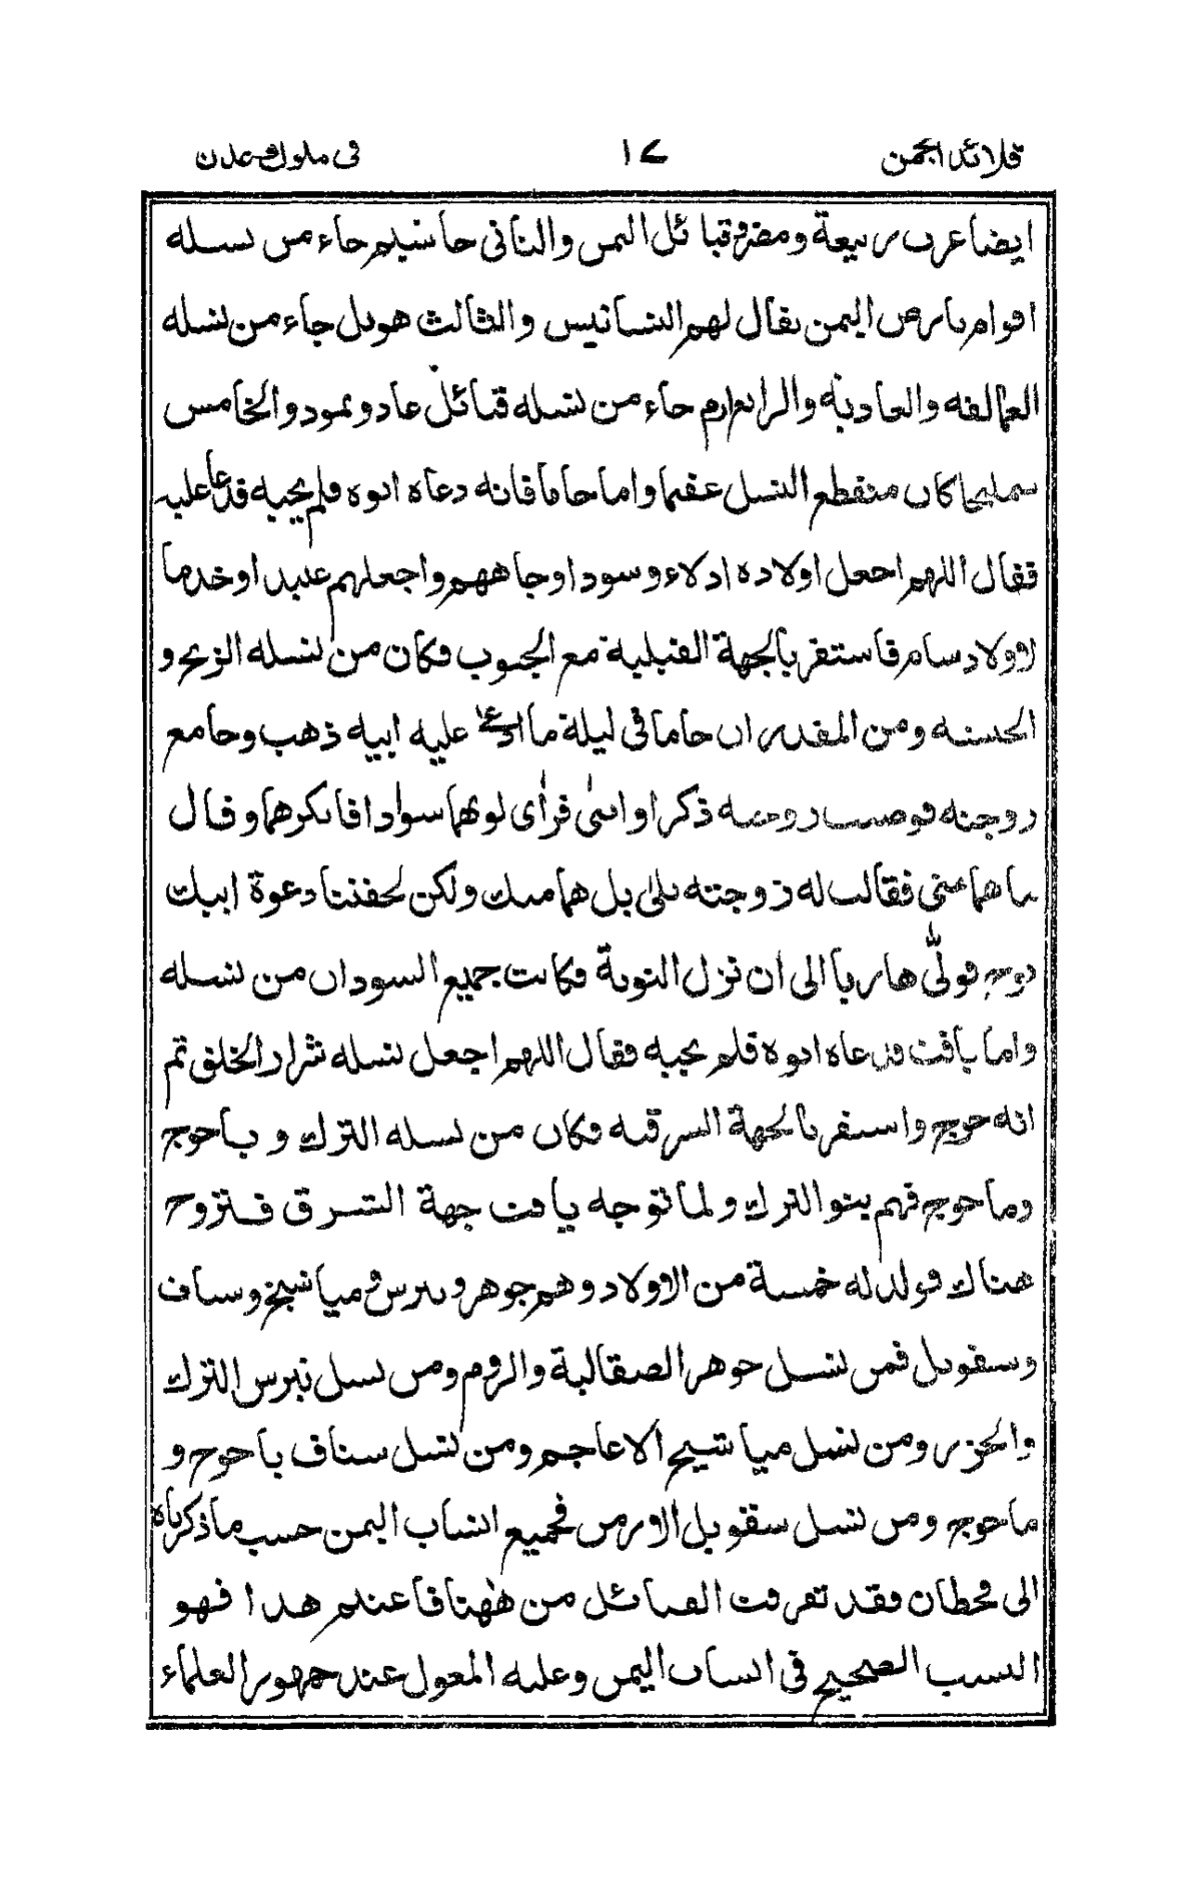 قلائد الجمن ١٧ فى ملوك عدن
ايضا عرب ربيعة ومضر وقبائل اليمن والثانى حاشيم جاء من نسله
اقوام بارض اليمن يقال لهم النسانيس والثالث هويل جاء من نسله
العمالقه والعاديه والرابع ارم جاء من نسله قبائل عاد وثمود والخامس
كان منقطع النسل عقيما واما حاما فانه دعاه ابوه فلم يجبه فدعا عليه
فقال اللهم اجعل اولاده ادلاء وسودا وجاههم واجعلهم عبيدا وخدما
لاولاد سام فاستقر بالجهة القبلية مع الجنوب فكان من نسله الزنج و
الحبشه ومن المقدر ان حاما فى ليلة ما ادعا عليه ابيه ذهب وجامع
زوجته فوضعت زوجته ذكرا وانثى فرأى لونهما سوادا فانكرهما وقال
ما هما منى فقالت له زوجته بلى بل هما منك ولكن لحقتنا دعوة ابيك
نوح فولّى هاربا الى ان نزل النوبة فكانت جميع السودان من نسله
واما يافت فدعاه ابوه فلم يجبه فقال اللهم اجعل نسله شرار الخلق ثم
انه خرج واستقر بالجهة الشرقيه فكان من نسله الترك و ياجوج
وماجوج فهم بنو الترك ولما توجه يافت جهة الشرق فتزوج
هناك فولد له خمسة من الاولاد وهم جوهر وتبرش ومياشيخ وسناف
وسقويل فمن نسل جوهر الصقالبة والروم ومن نسل تبرس الترك
والخزر ومن نسل مياشيح الاعاجم ومن نسل سناف ياجوج و
ماجوج ومن نسل سقويل الارمن فجميع انساب اليمن حسب ما ذكرناه
الى قحطان فقد تفرقت القبائل من ههنا فاعلم هذا فهو
النسب الصحيح فى انساب اليمن وعليه المعول عند جمهور العلماء